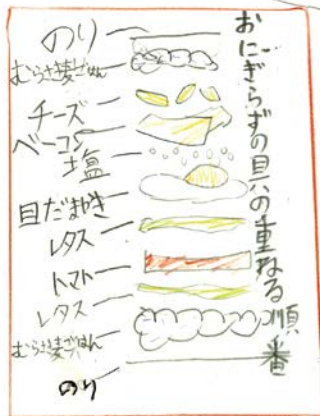 おにぎらずの具の重ねる順番
のり
むらさき麦ごはん
チーズ
ベーコン
塩
目だまやき
レタス
トマト
レタス
むらさき麦ごはん
のり